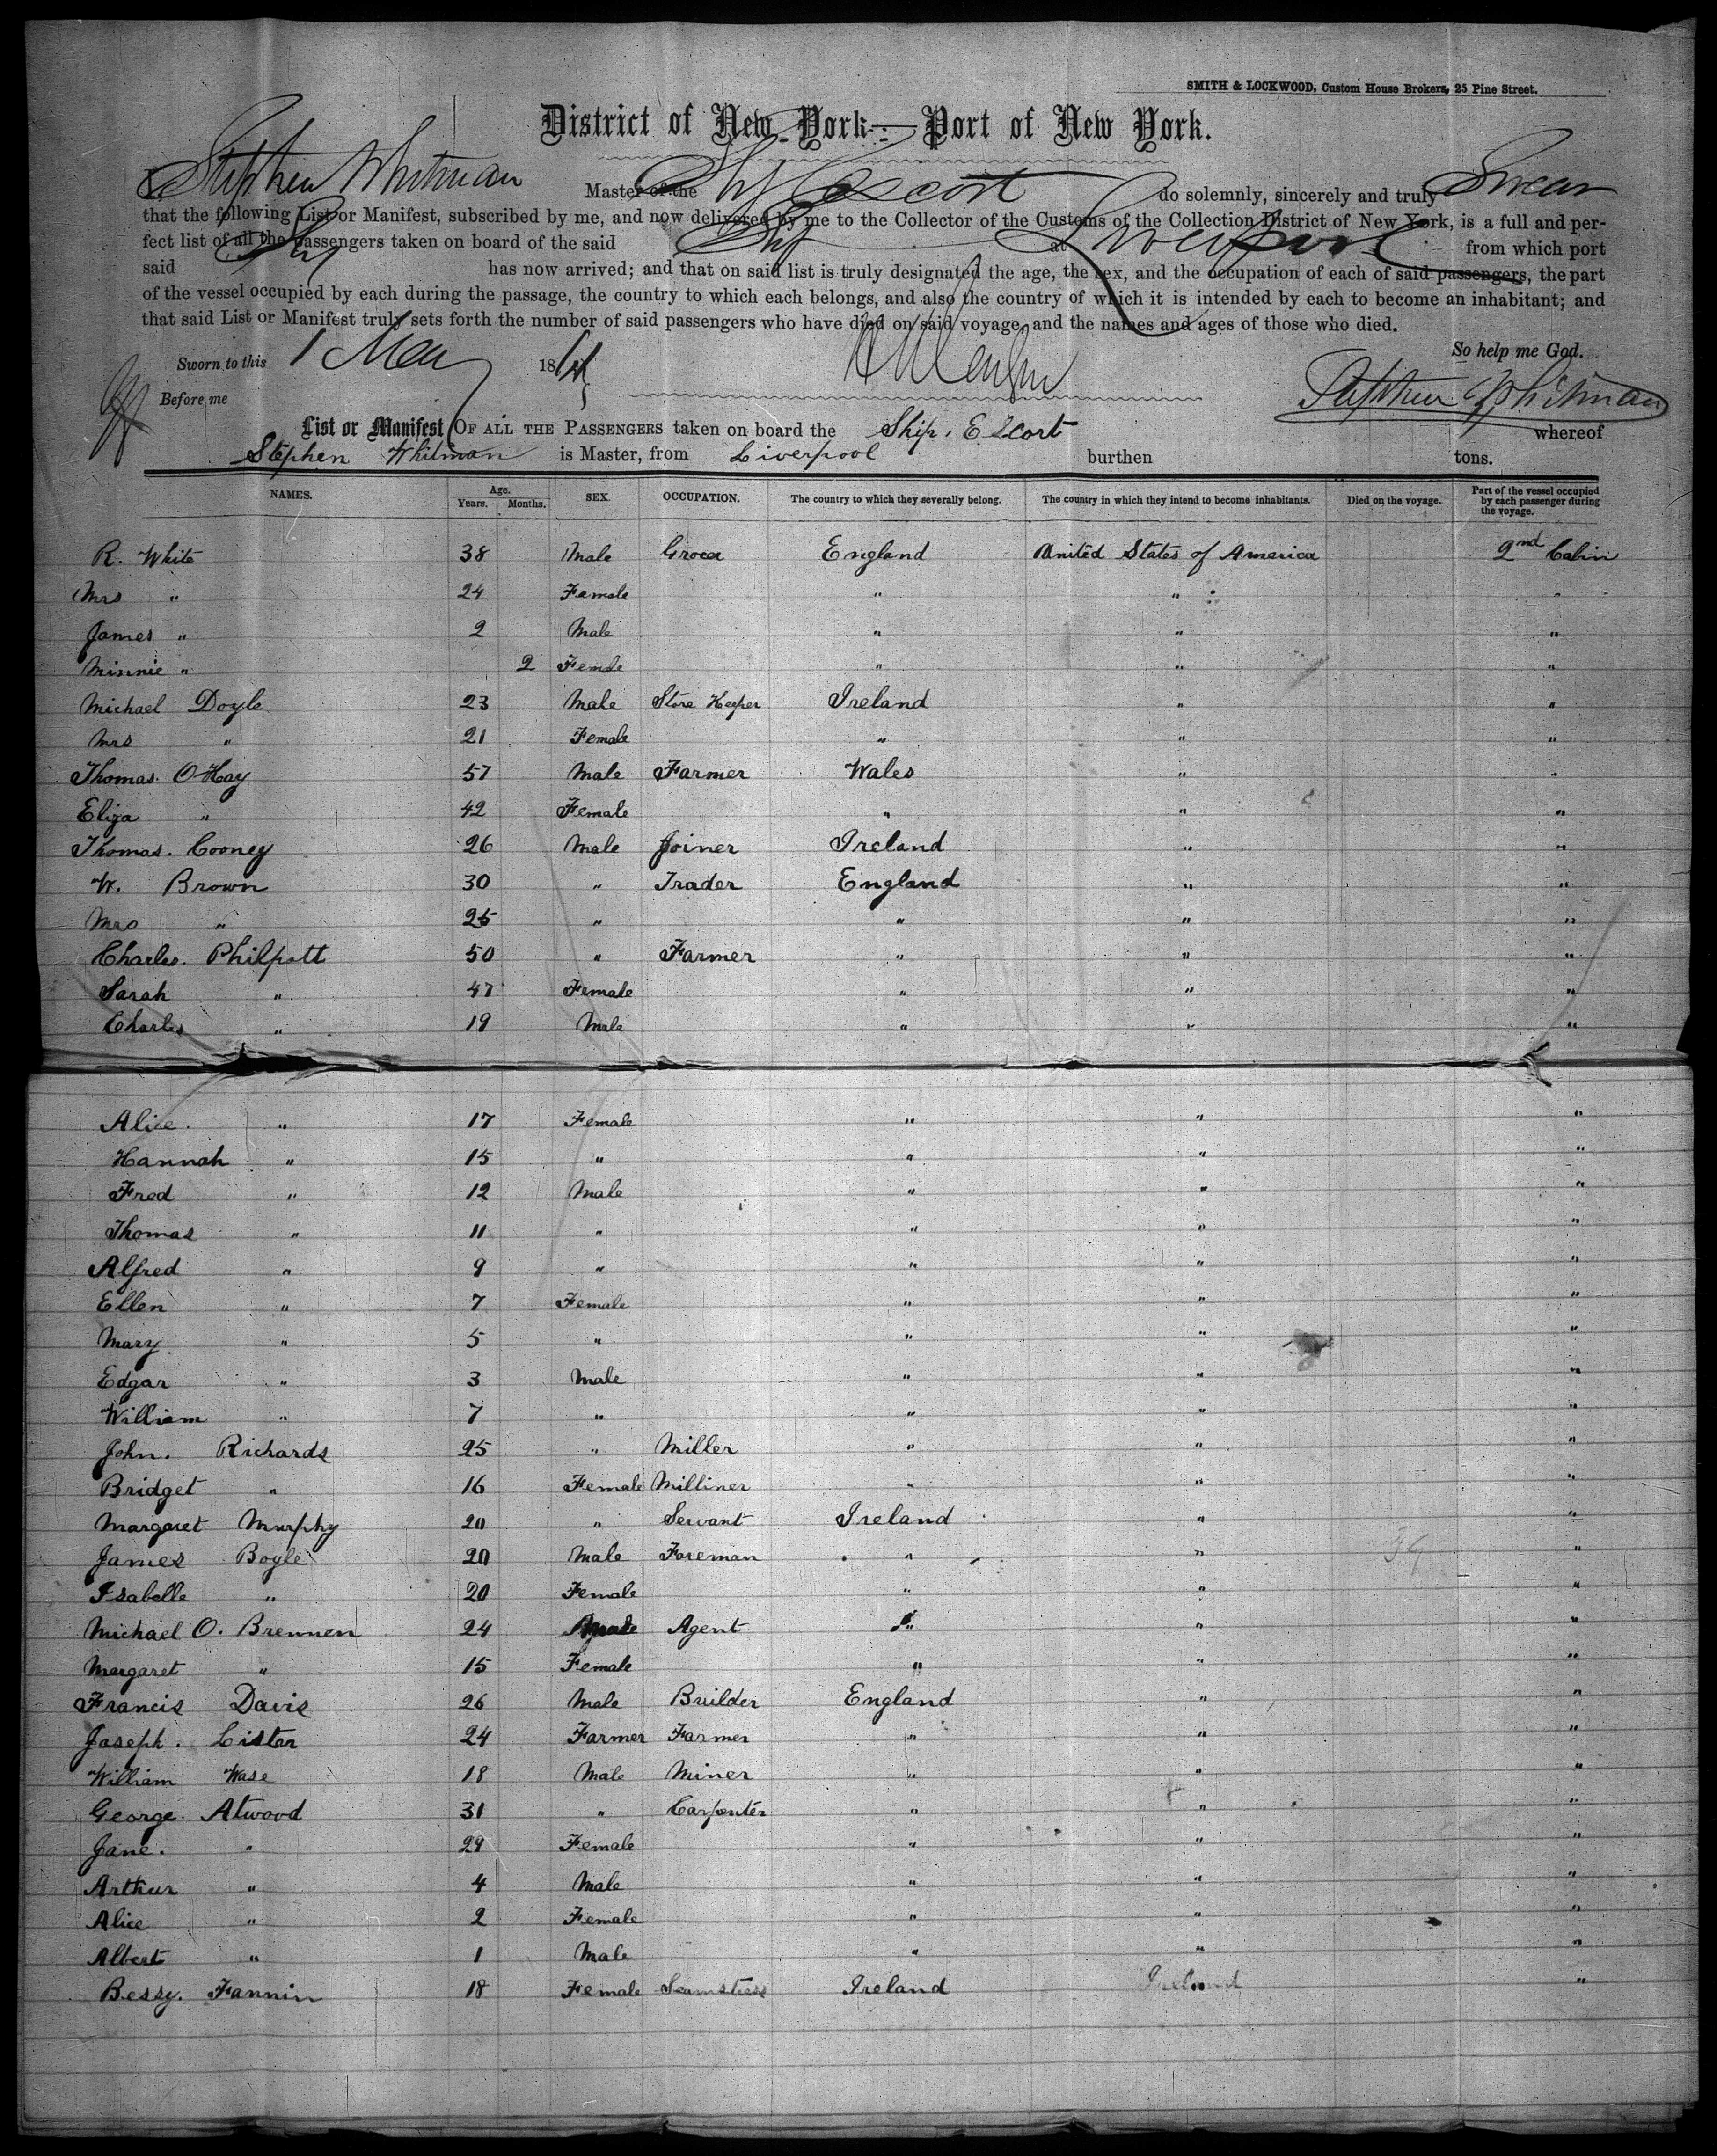 SMITH & LOCKWOOD, Custom House Brokers, 25 Pine Street.
District of New York—Port of New York.
Stephen Whitman Master of the Ship Escort do solemnly, sincerely and truly Swear
that the following List or Manifest, subscribed by me, and now delivered by me to the Collector of the Customs of the Collection District of New York, is a full and per-
fect list of all the passengers taken on board of the said Ship at Liverpool from which port
said Ship has now arrived; and that on said list is truly designated the age, the sex, and the occupation of each of said passengers, the part
of the vessel occupied by each during the passage, the country to which each belongs, and also the country of which it is intended by each to become an inhabitant; and
that said List or Manifest truly sets forth the number of said passengers who have died on said voyage, and the names and ages of those who died.
So help me God.
Sworn to this 1 May 18
Before me
Stephen Whitman
List or Manifest OF ALL THE PASSENGERS taken on board the Ship. Escort whereof
Stephen Whitman is Master, from Liverpool burthen tons.
NAMES. Age. Years. Months. SEX. OCCUPATION. The country to which they severally belong. The country in which they intend to become inhabitants. Died on the voyage. Part of the vessel occupied by each passenger during the voyage.
R. White 38 Male Grocer England United States of America 2nd Cabin
Mrs " 24 Female " " "
James " 2 Male " " "
Minnie " 2 Female " " "
Michael Doyle 23 Male Store Keeper Ireland " "
Mrs " 21 Female " " "
Thomas. O Hay 57 Male Farmer Wales " "
Eliza " 42 Female " " "
Thomas. Cooney 26 Male Joiner Ireland " "
W. Brown 30 " Trader England " "
Mrs " 25 " " " "
Charles. Philpott 50 " Farmer " " "
Sarah " 47 Female " " "
Charles " 19 Male " " "
Alice. " 17 Female " " "
Hannah " 15 " " " "
Fred " 12 Male " " "
Thomas " 11 " " " "
Alfred " 9 " " " "
Ellen " 7 Female " " "
Mary " 5 " " " "
Edgar " 3 Male " " "
William " 7 " " " "
John. Richards 25 " Miller " " "
Bridget " 16 Female Milliner " " "
Margaret Murphy 20 " Servant Ireland " "
James Boyle 20 Male Foreman " " 39 "
Isabelle " 20 Female " " "
Michael O. Brennen 24 Male Agent " " "
Margaret " 15 Female " " "
Francis Davis 26 Male Builder England " "
Joseph. Lister 24 Farmer Farmer " " "
William Wase 18 Male Miner " " "
George. Atwood 31 " Carpenter " " "
Jane. " 29 Female " " "
Arthur " 4 Male " " "
Alice " 2 Female " " "
Albert " 1 Male " " "
Bessy. Fannin 18 Female Seamstress Ireland Ireland "